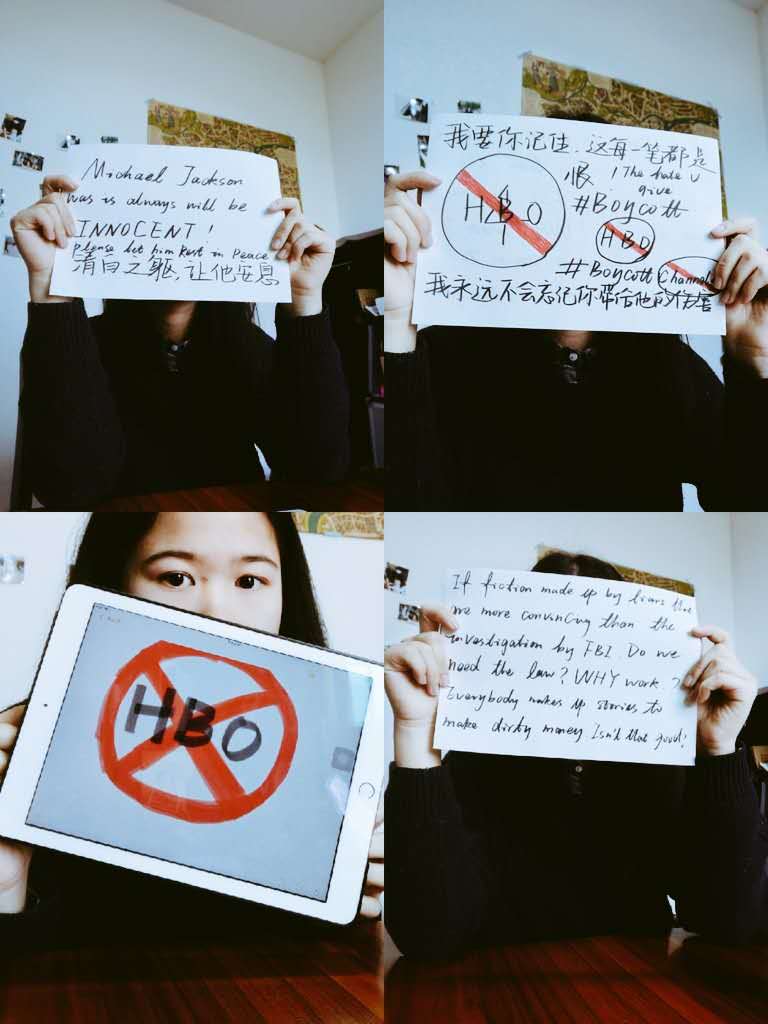 Michael Jackson
was is always will be
INNOCENT!
please let him Rest in Peace
清白之躯,让他安息
我要你记住、这每一笔都是
恨 ! The hate U
give
HBO
#Boycott
HBO
#Boycott Channel
我永远不会忘记你带给他的伤害
HBO
If fiction made up by liars
are more convincing than the
investigation by FBI. Do we
need the law? WHY work?
Everybody makes up stories to
make dirty money Isn't that good!